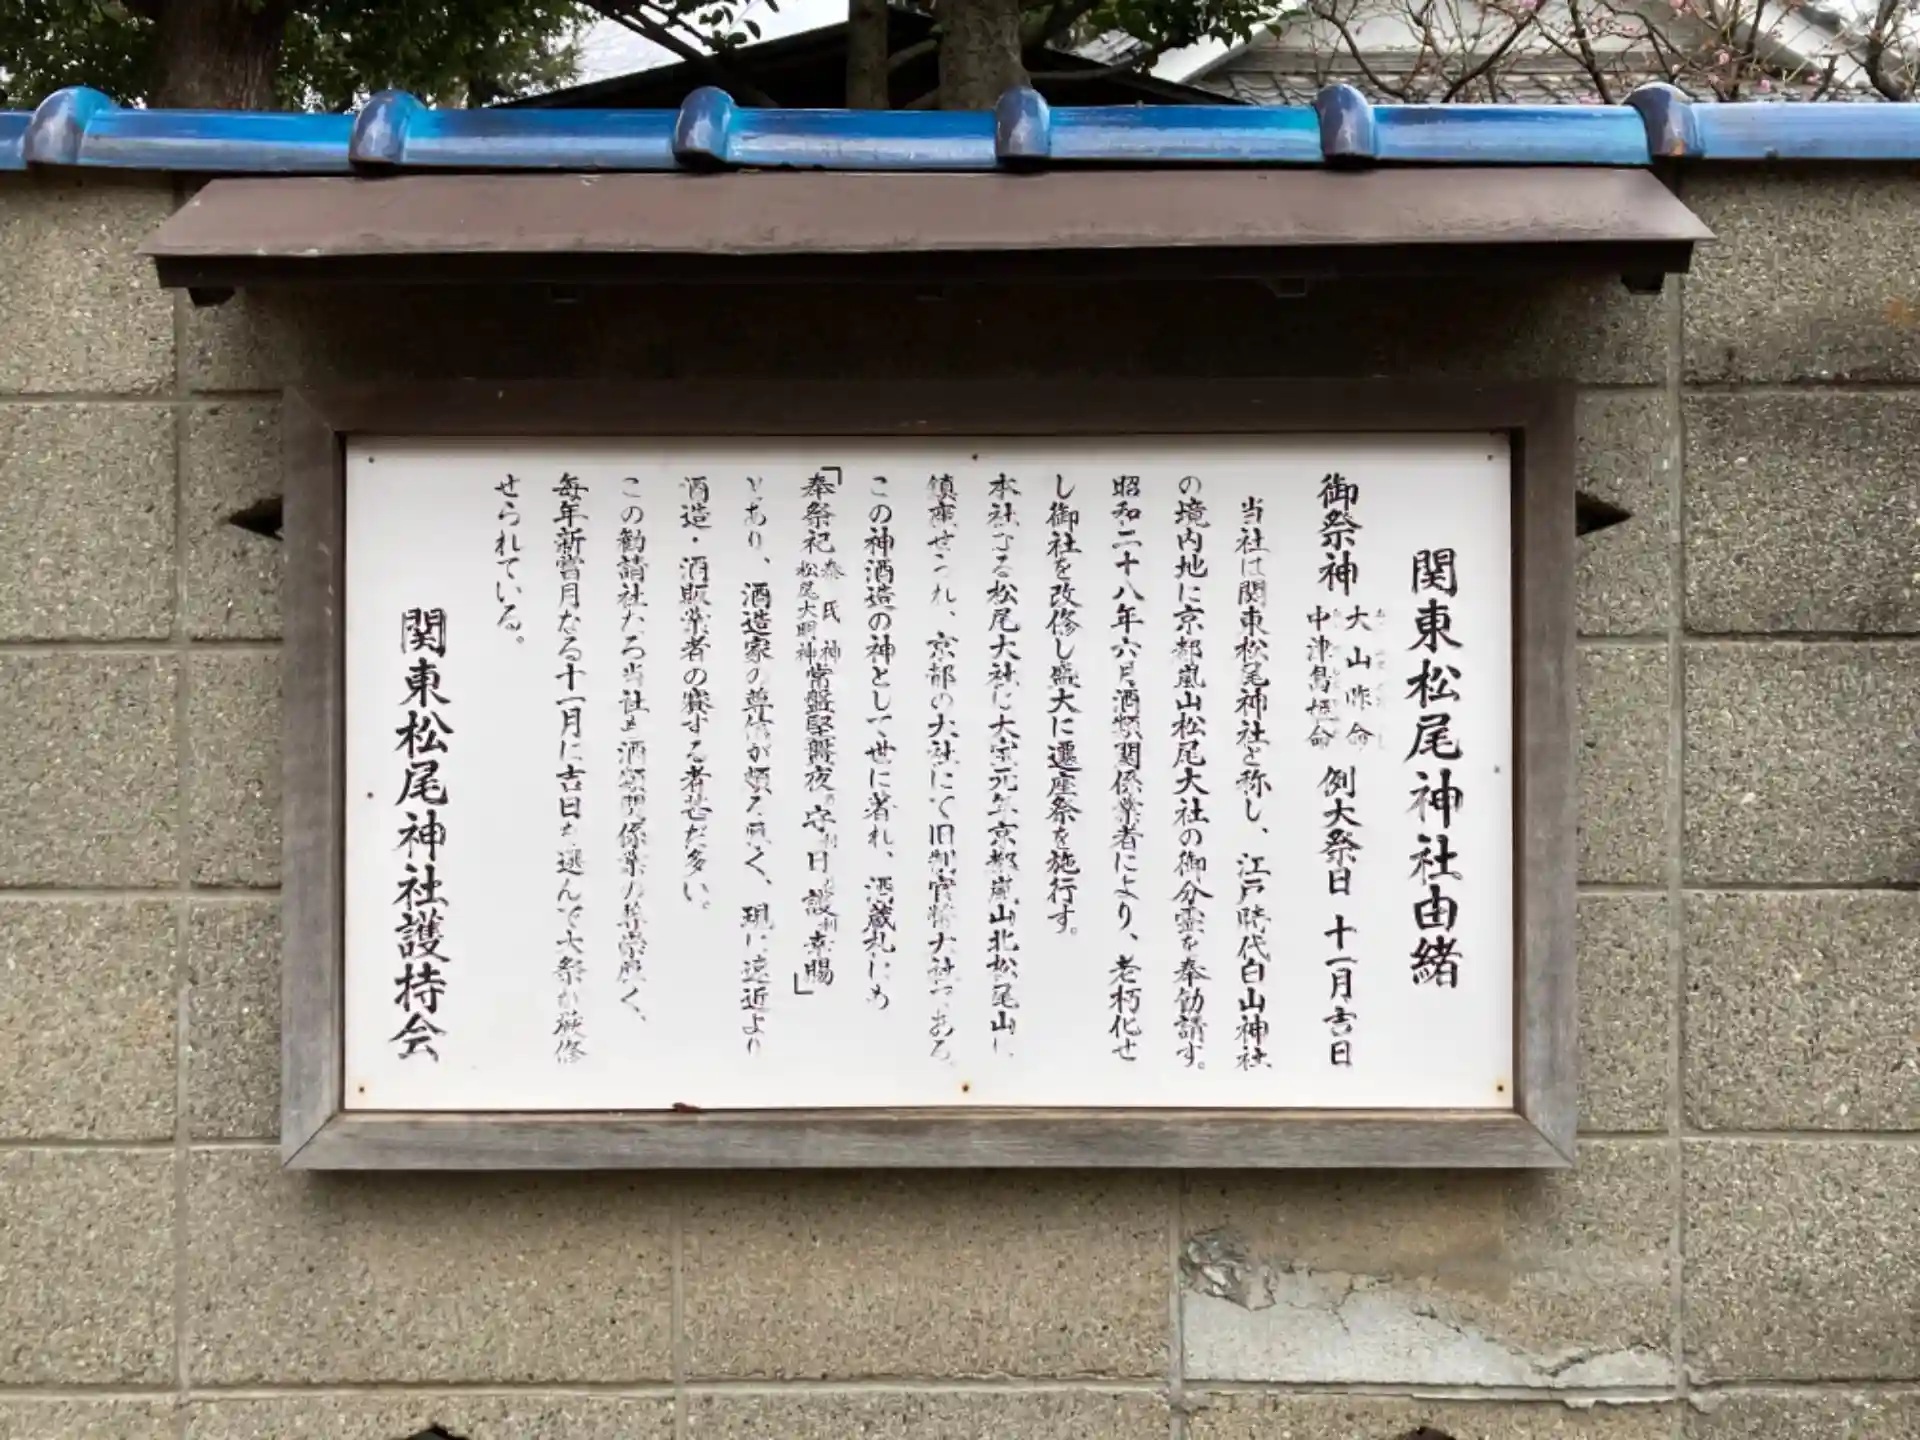 関東松尾神社由緒
御祭神 大山咋命 中津島姫命 例大祭日 十一月吉日
当社は関東松尾神社と称し、江戸時代白山神社
の境内地に京都嵐山松尾大社の御分霊を奉勧請す。
昭和二十八年六月酒類関係業者により、老朽化せ
し御社を改修し盛大に遷座祭を施行す。
本社なる松尾大社は大宝元年京都嵐山北松尾山に
鎮座せられ、京都の大社にて旧制官幣大社である。
この神酒造の神として世に著れ、酒蔵札にも
「奉祭祀 秦氏神 松尾大明神 常盤堅盤夜守日
とあり、酒造家の尊信が頗る厚く、現に遠近より
酒造・酒販業者の賽する者甚だ多い。
この勧請社たる当社も酒類関係業の尊崇厚く、
毎年新嘗月なる十一月に吉日を選んで大祭が厳修
せられている。
関東松尾神社護持会